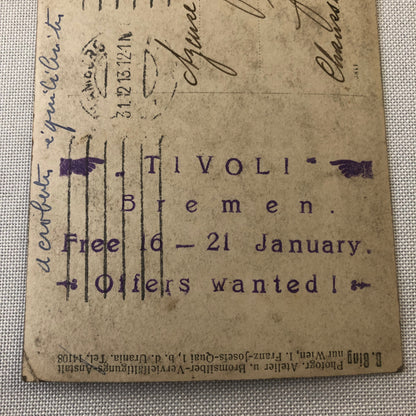 TIVOLI
Bremen.
Free 16 – 21 January.
Offers wanted!
31.12.13.12-1N
acrobats équilibristes
Agence
C. Bing
nur Wien, I. Franz-Josefs-Quai 1, b. d. Urania. Tel. 14108
Photogr. Atelier u. Bromsilber-Vervielfältigungs-Anstalt